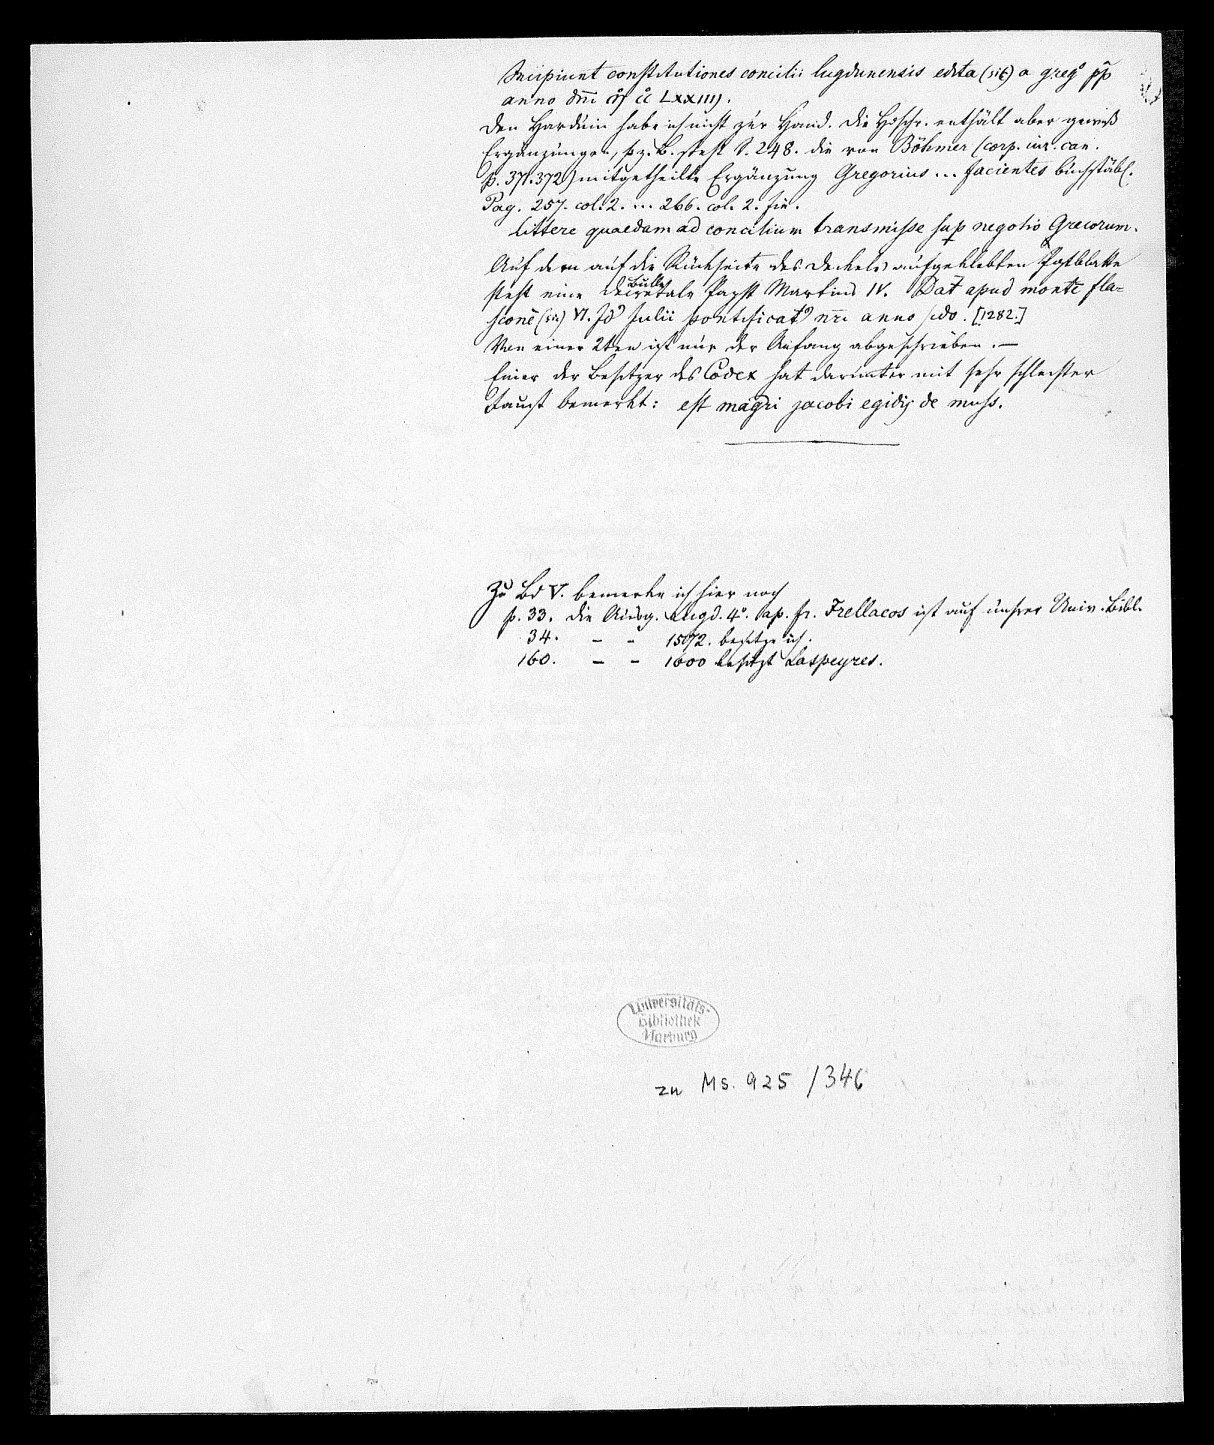 Incipiunt constitutiones concilii lugdunensis edita (sic) a greg̊ pp̄
anno dn̄i m̊ c̊c LXXIIIJ.
Den Harduin habe ich nicht zur Hand. Die Hdschr. enthält aber gewiß
Ergänzungen, so z. B. steht S. 248. die von Böhmer (corp. iur. can.
p. 371. 372) mitgetheilte Ergänzung Gregorius ... facientes buchstäbl.
Pag. 257. col. 2. ... 266. col. 2. fin.
littere quaedam ad concilium transmisse sup negotio Grecorum.
Auf dem auf die Rückseite des Deckels aufgeklebten Pgtblatte
steht eine Bulle Papst Martins IV. Dat̄ apud monte fla=
sconē (sic) VI. Id⁹ Julii pontificat⁹ nr̄i anno sc̄do. [1282.]
Von einer 2ten ist nur der Anfang abgeschrieben. —
Einer der Besitzer des Codex hat darunter mit sehr schlechter
Faust bemerkt: est magr̄i jacobi egidij de muss.
Zu Bd V. bemerke ich hier noch
p. 33. die Ausg. Lugd. 4°. ap. fr. Frellaeos ist auf unsrer Univ. Bibl.
34. – – 1572. besitze ich.
160. – – 1600 besitzt Laspeyres.
Universitäts-
Bibliothek
Marburg
zu Ms. 925/346